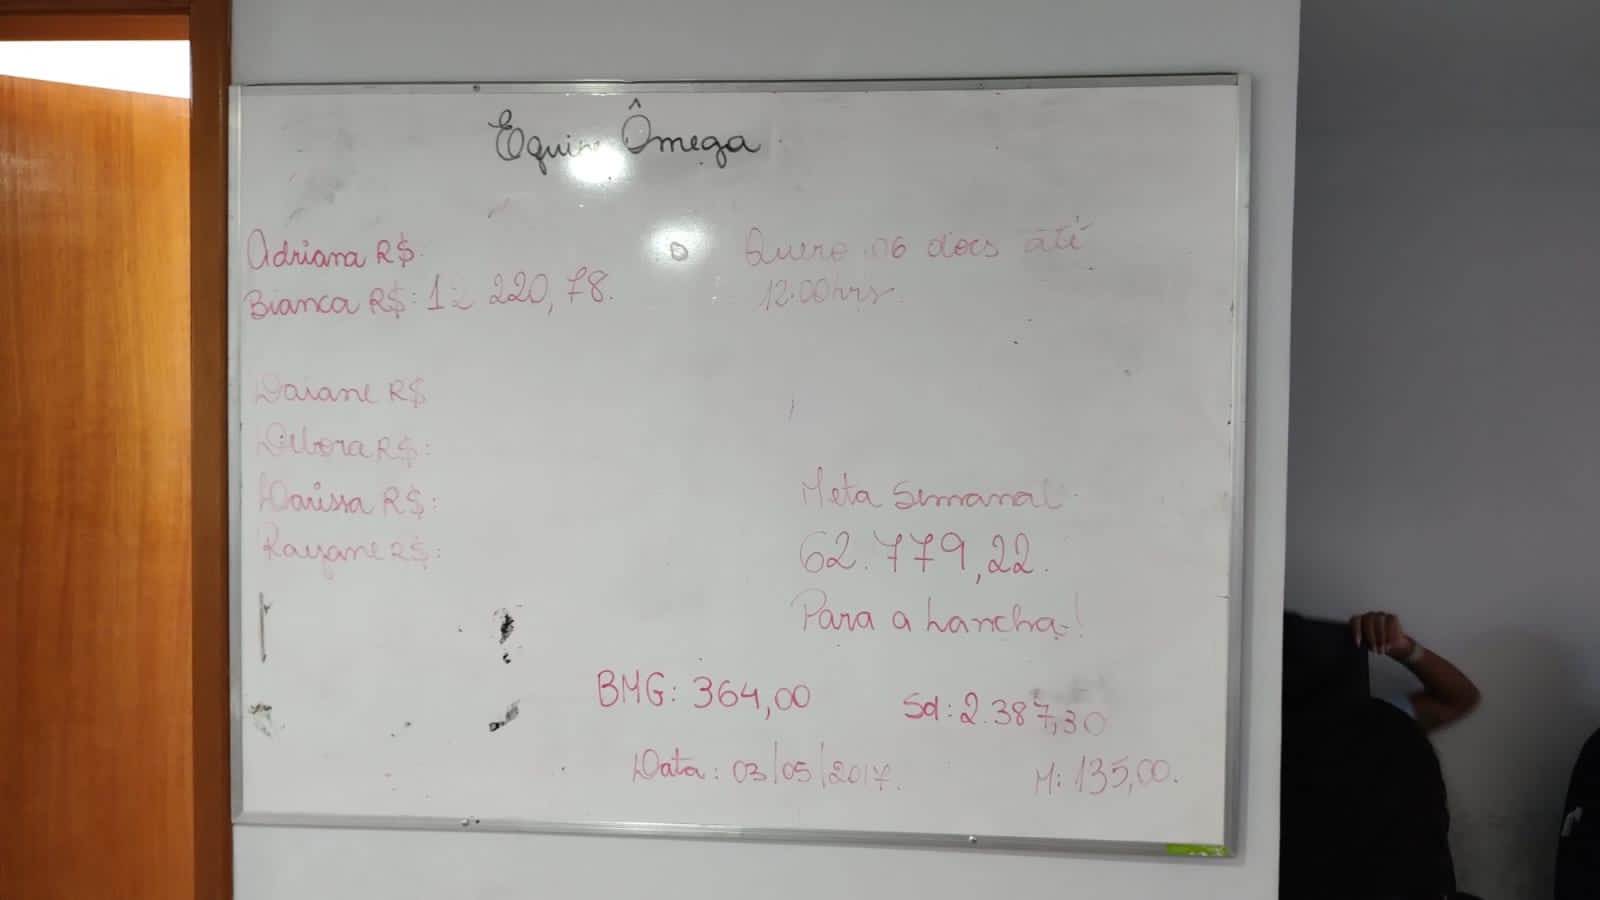 Equipe Ômega
Adriana R$
Bianca R$: 12 220,78.
Quero 06 docs até
12:00hrs.
Daiane R$
Débora R$:
Larissa R$:
Rayane R$:
Meta Semanal
62.779,22.
Para a Lancha!
BMG: 364,00
Sd: 2.387,30
Data: 03/05/2017.
M: 135,00.